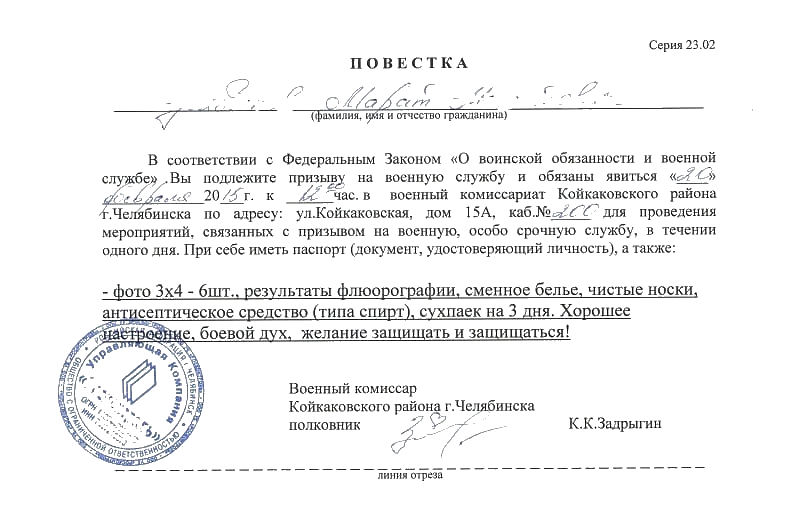 Серия 23.02
ПОВЕСТКА
Марат
(фамилия, имя и отчество гражданина)
В соответствии с Федеральным Законом «О воинской обязанности и военной
службе» .Вы подлежите призыву на военную службу и обязаны явиться «20»
февраля 2015г. к 12 00 час. в военный комиссариат Койкаковского района
г.Челябинска по адресу: ул.Койкаковская, дом 15А, каб.№200 для проведения
мероприятий, связанных с призывом на военную, особо срочную службу, в течении
одного дня. При себе иметь паспорт (документ, удостоверяющий личность), а также:
- фото 3х4 - 6шт., результаты флюорографии, сменное белье, чистые носки,
антисептическое средство (типа спирт), сухпаек на 3 дня. Хорошее
настроение, боевой дух, желание защищать и защищаться!
РОССИЙСКАЯ ФЕДЕРАЦИЯ г. ЧЕЛЯБИНСК
ОБЩЕСТВО С ОГРАНИЧЕННОЙ ОТВЕТСТВЕННОСТЬЮ
Управляющая Компания
ОГРН
ИНН
Военный комиссар
Койкаковского района г.Челябинска
полковник К.К.Задрыгин
линия отреза